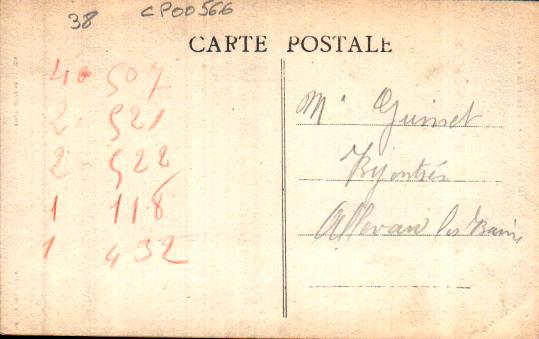 38 CP00566
CARTE POSTALE
40 507
2 - 521
2 - 522
1 118
1 432
Mr Guinet
Allevard les Bains